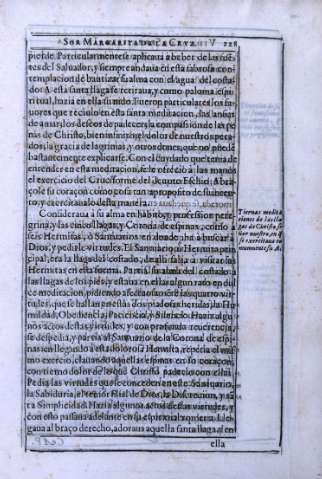 SOR MARGARITA DE LA CRVZ. 228
posible. Particularmente se aplicaua a beber de las fuen-
tes del Saluador, y siempre andaua en esta sabrosa con-
templacion de bautizar su alma con el agua del costa-
do. A esta santa llaga se retiraua, y como paloma espi-
ritual, hazia en ella su nido. Fueron particulares los fa-
uores que recibio en esta santa meditacion, las ansias
de amar, los deseos de padecer, la compassion de las pe-
nas de Christo, bien sin
perados, la gracia de lagrimas, y otros dones, que no puede
bastantemente explicarse. Con el cuydado que tenia de
entender en esta meditacion, se le ofreciò a las manos
el exercicio del Crucifixo del
çole su coraçon como cosa tan a proposito de su inten-
to, y exercitaualo desta manera.
Consideraua à su alma en habito, y profession pere-
grina, y las cinco llagas, y Corona de espinas, como à
seis Hermitas, ò Santuarios en donde iba à buscar à
Dios, y pedirle virtudes. El Santuario, ò Hermita prin-
cipal, era la llaga del costado, de alli salia à visitar las
Hermitas en esta forma. Partia su alma del costado à
las llagas de los pies, y estaua en ellas algun rato en dul-
ce meditacion, pidiendo a
tudes, que se hallan
mildad, Obediencia, Paciencia, y Silencio. Hazia algu-
nos actos destas virtudes, y con profunda reuerencia,
se despedia, y partia al Santuario de la Corona de espi-
nas: en llegando à esta dolorosa Hermita, repetia el mis-
mo exercicio, clauando aquellas espinas en su coraçon,
con tierno dolor de lo que Christo padeciò con ellas.
Pedia las virtudes que se conceden en este Santuario,
la Sabiduria, el Temor filial de Dios, la Discrecion, y sa-
ta Simplicidad. Hazia algunos actos destas virtudes, y
con esto passaua adelante en su espiritual xornada. Lle-
gaua al braço derecho, adoraua aquella santa llaga, i en
ella
Tiernas medita
ciones de las lla
gas de Christo, se
ñor nuestro, en q̃
se exercitaua co
munmente, su A.